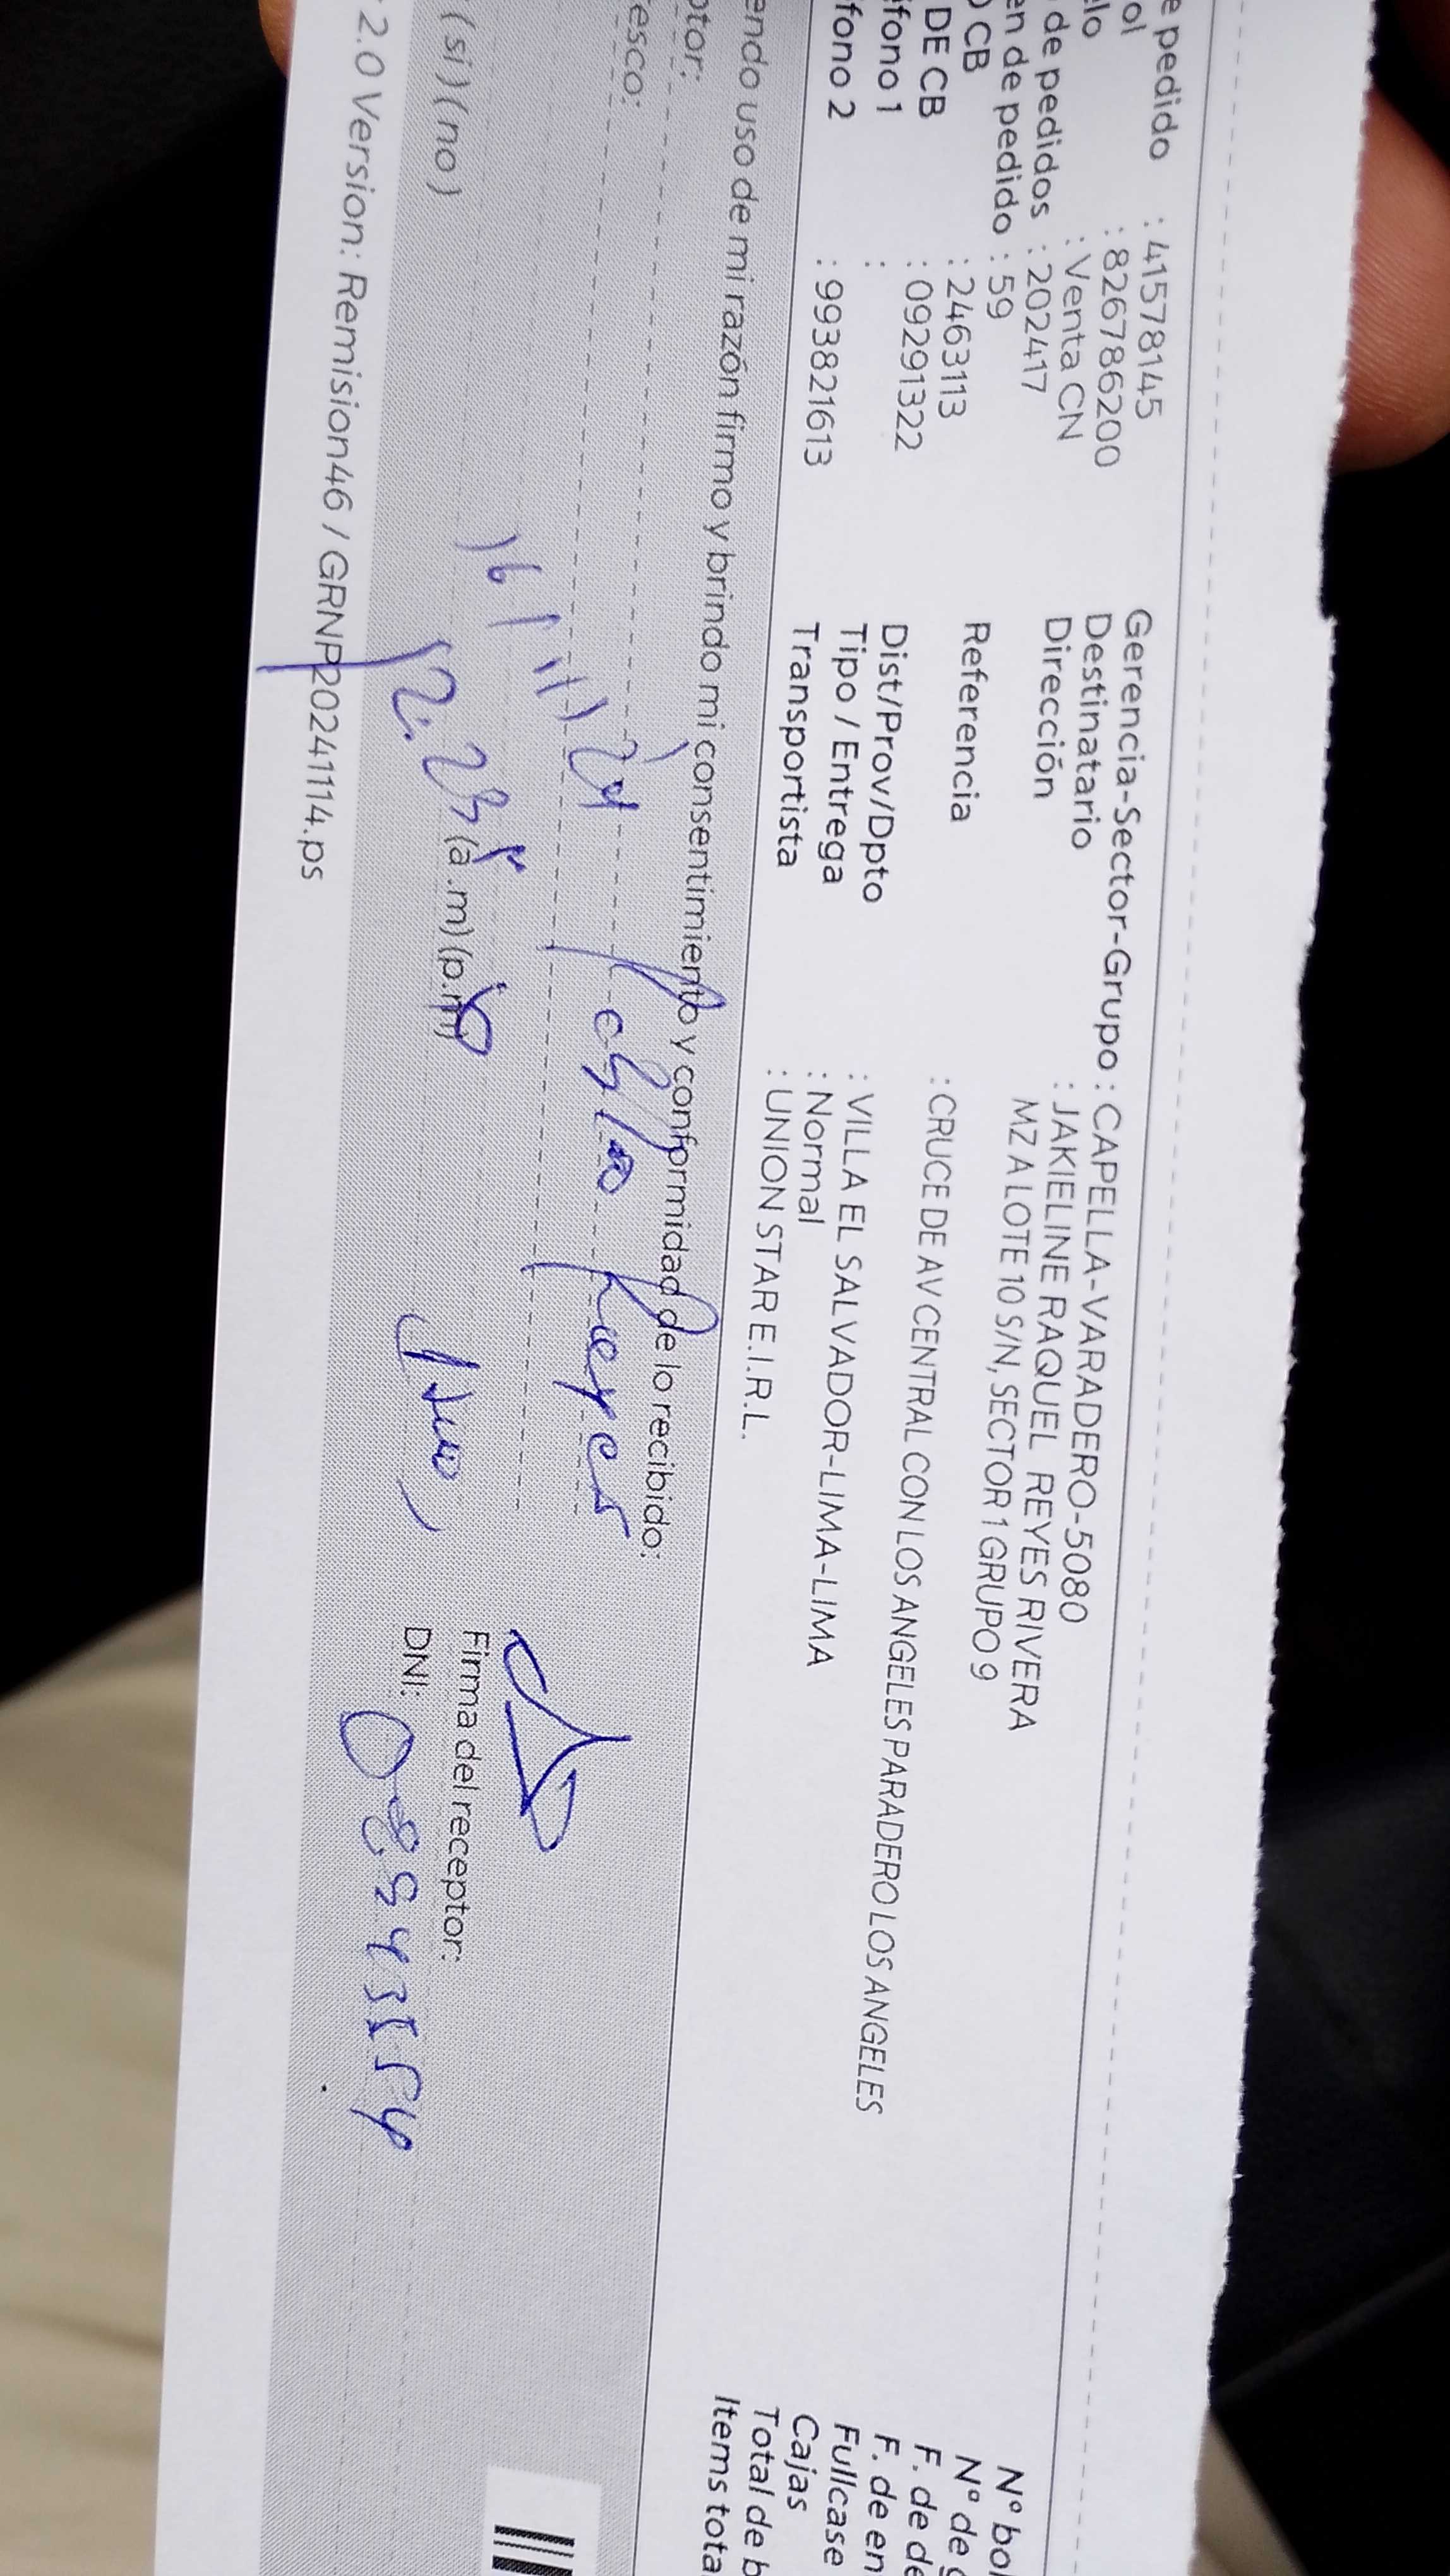 e pedido : 41578145
ol : 826786200
elo : Venta CN
de pedidos : 202417
en de pedido : 59
CB : 2463113
DE CB : 09291322
fono 1 :
fono 2 : 993821613
Gerencia-Sector-Grupo : CAPELLA-VARADERO-5080
Destinatario : JAKIELINE RAQUEL REYES RIVERA
Dirección MZ A LOTE 10 S/N, SECTOR 1 GRUPO 9
Referencia : CRUCE DE AV CENTRAL CON LOS ANGELES PARADERO LOS ANGELES
Dist/Prov/Dpto : VILLA EL SALVADOR-LIMA-LIMA
Tipo / Entrega : Normal
Transportista : UNION STAR E.I.R.L.
N° bol
N° de g
F. de de
F. de en
Fullcase
Cajas
Total de b
Items tota
endo uso de mi razón firmo y brindo mi consentimiento y conformidad de lo recibido:
ptor: Reyes
esco:
16 / 11 / 24
(si) (no) 12:23 (a.m) (p.m)
Firma del receptor:
DNI:
2.0 Version: Remision46 / GRNP20241114.ps